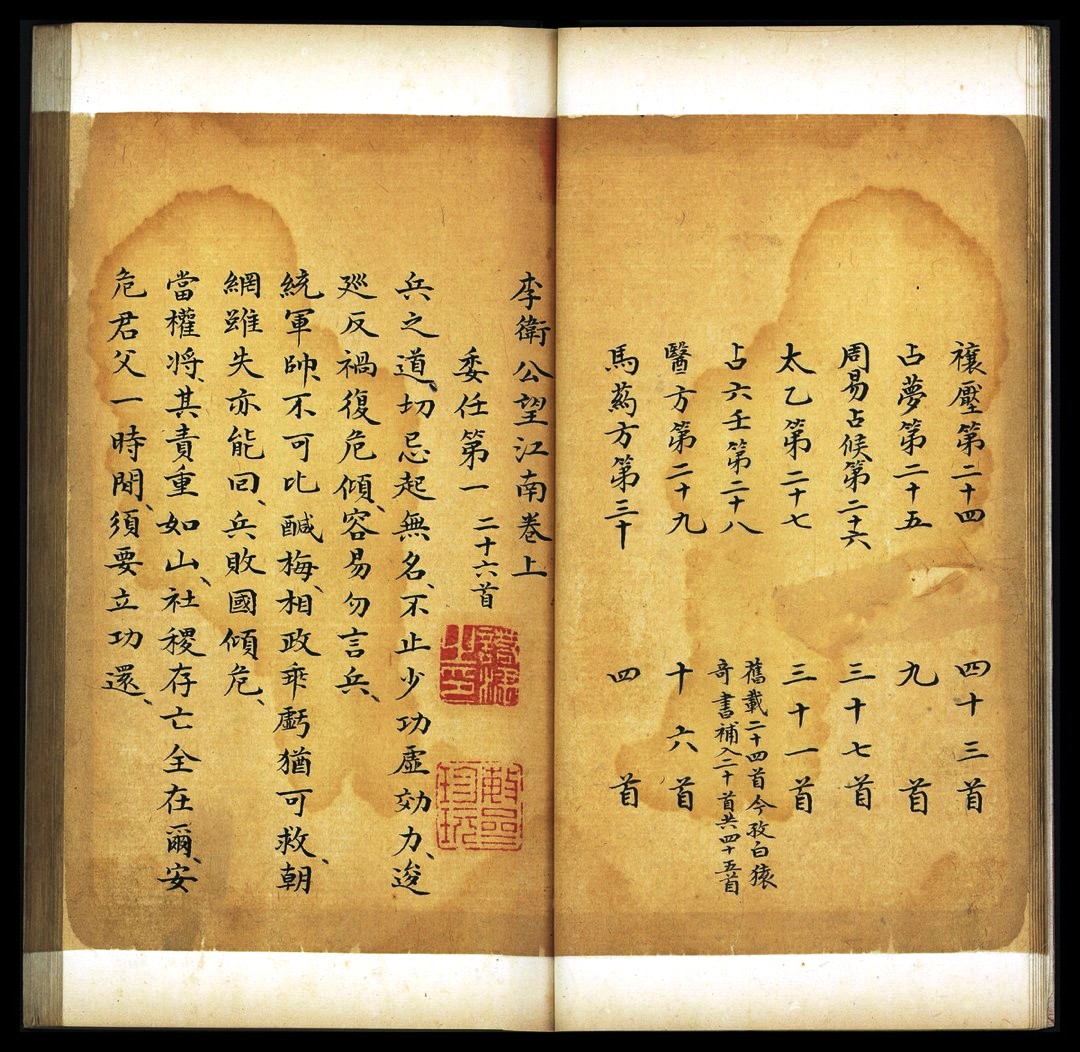 禳壓第二十四　四十三首
占夢第二十五　九首
周易占候第二十六　三十七首
太乙第二十七　三十一首
占六壬第二十八　舊載二十四首今攷白猿
奇書補入二十首共四十五首
醫方第二十九　十六首
馬药方第三十　四首
李衛公望江南卷上
委任第一　二十六首
兵之道、切忌起無名、不止少功虛効力、逡
巡反禍復危傾、容易勿言兵、
統軍帥、不可比醎梅、相政乖虧猶可救、朝
網雖失亦能囘、兵敗國傾危、
當權將、其責重如山、社稷存亡全在爾、安
危君父一時閒、須要立功還、